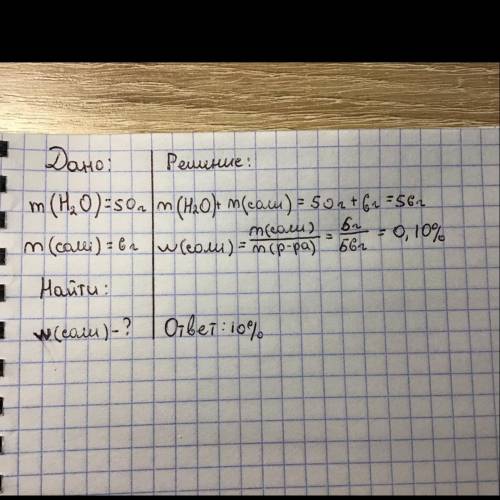 Дано:
Решение:
m(H₂O)=50г
m(H₂O)+m(соли)=50г+6г=56г
m(соли)=6г
w(соли)=m(соли)/m(р-ра)=6г/56г=0,10%
Найти:
w(соли)-?
Ответ:10%